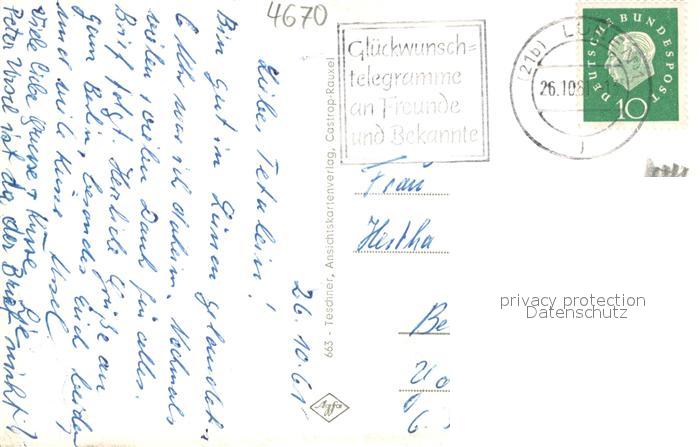 4670
Glückwunsch=
telegramme
an Freunde
und Bekannte
(21b) LÜ
26.10.6
DEUTSCHE BUNDESPOST
10
26.10.61
Bin gut in Lünen gelandet.
6 Uhr war ich daheim. Nochmals
vielen, vielen Dank für alles.
Brief folgt. Herzliche Grüße an
ganz Berlin, besonders Euch beiden
Viele liebe Grüsse + Küsse,
Peter Ursel ist da, der Brief nicht!
663 - Teschner, Ansichtskartenverlag, Castrop-Rauxel
Agfa
Frau
Hertha
Be
privacy protection
Datenschutz